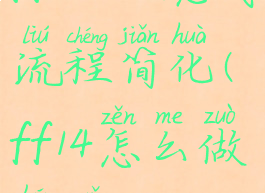 liú chéng jiǎn huà
流程简化(
zěn me zuò
ff14怎么做